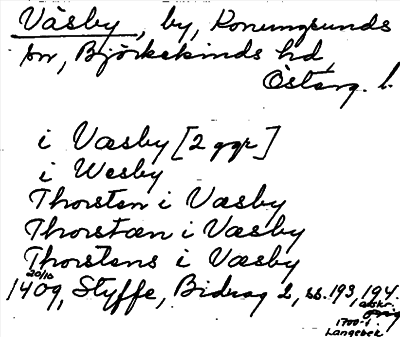 Väsby, by, Konungsunds
sn, Björkekinds hd,
Österg. l.
i Væsby [2 ggr]
i Wesby
Thorsten i Væsby
Thorstæn i Væsby
Thorstens i Væsby
20/10
1409, Styffe, Bidrag 2, ss. 193, 194.
avskr.
1700-t.
Langebek